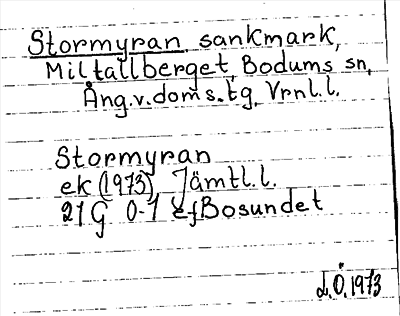 Stormyran sankmark,
Miltallberget, Bodums sn,
Ång.v.doms.tg, Vrnl.l.
Stormyran
ek (1973), Jämtl.l.
21 G 0-1 ef Bosundet
L.Ö. 1973